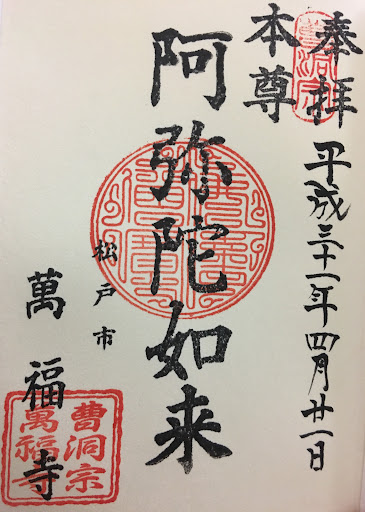 曹洞宗
奉拝 平成三十一年四月廿一日
本尊
阿弥陀如来
松戸市
萬福寺
曹洞宗
萬福寺